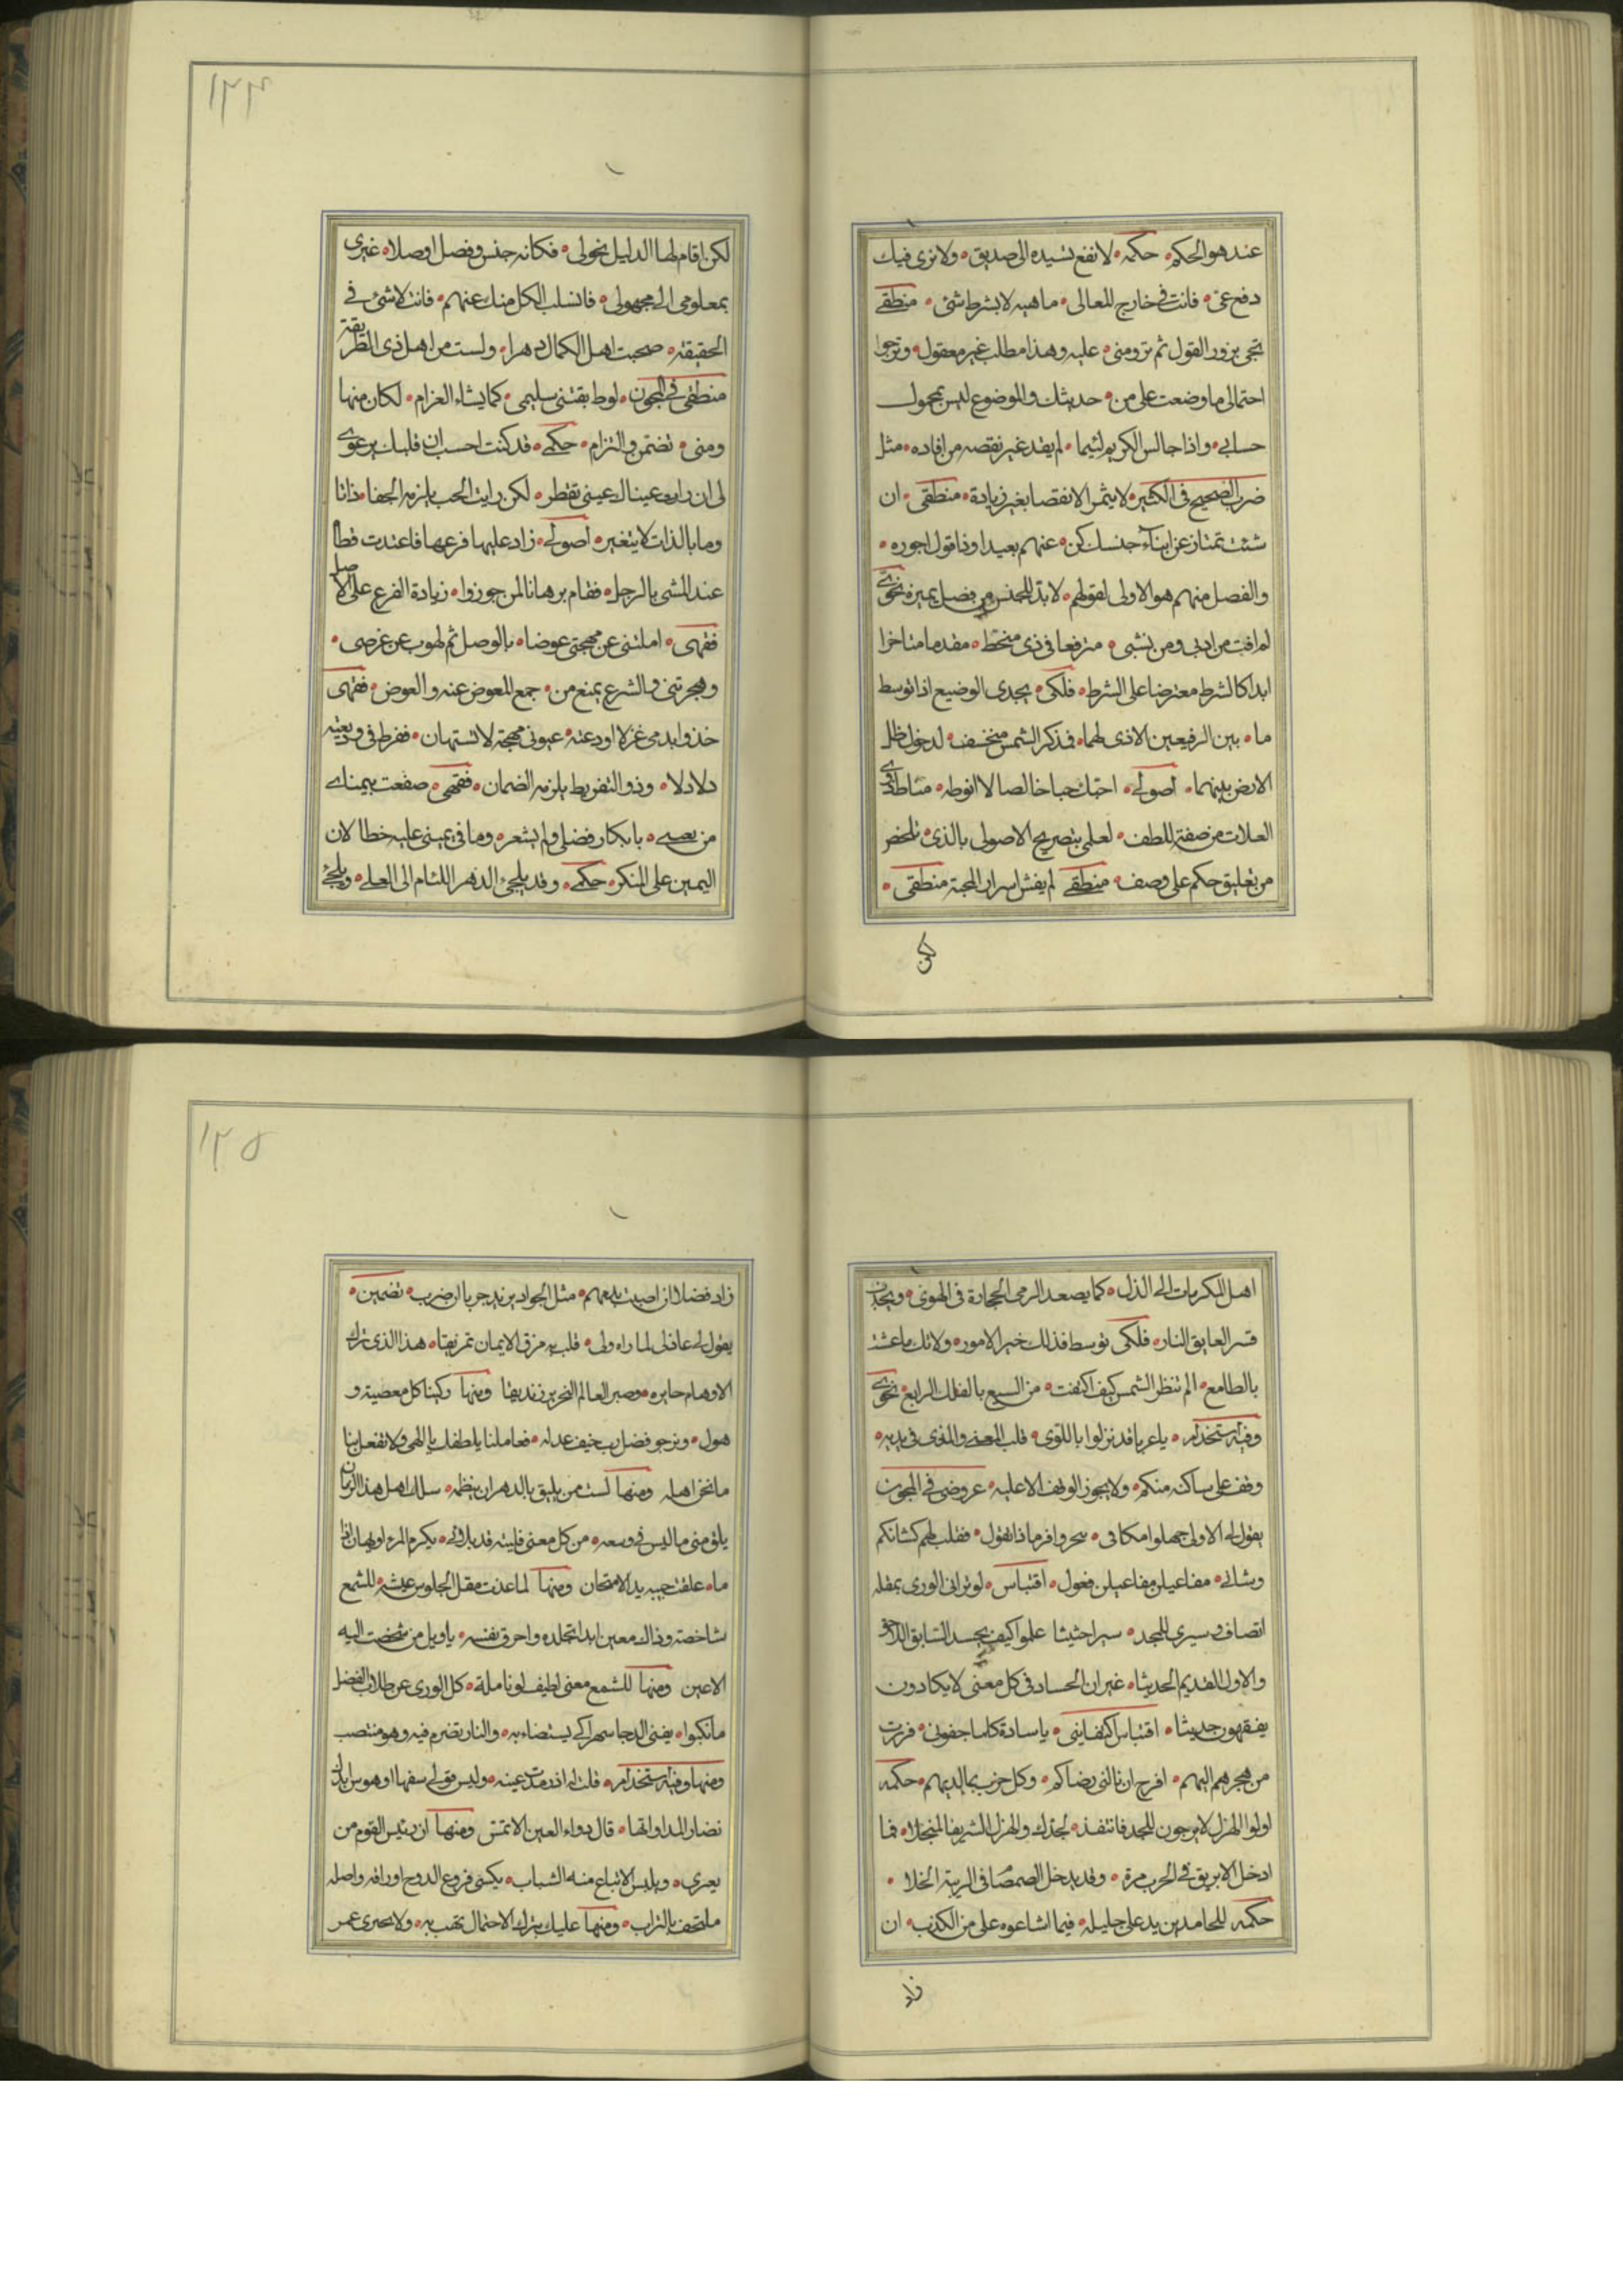 ١٢٤
عند هو الحكم حكمه لا نفع تسيده الى صديق ولا نرى فيك
دفع عنى فانت فى خارج المعالى ماهيه لا بشرط شئ منطقے
تجى بزور القول ثم ترومنى عليه وهذا مطلب غير معقول وترجوا
احتمالى ما وضعت على من حديثك والموضوع ليس بمحمول
حسابے واذا جالس الكريم لئيما لم يفد غير نقصه من افاده مثل
ضرب الصحيح فى الكسر لا يثمر الا نقصا بغير زيادة منطقى ان
شئت تمتاز عن ابناء جنسك كن عنهم بعيدا وذا قول اجوره
والفصل منهم هو الاولى لقولهم لا بد للجنس من فصل يميزه نحوى
لم افت من ادبى ومن نشبى مترفعا فى ذى منحط مقدما متاخرا
ابدا كالشرط معترضا على الشرط فلكى يجدى الوضيع اذا توسط
ما بين الرفيعين الاذى لهما فذكر الشمس منخسف لدخول ظل
الارض بينهما اصولے احبك حبا خالصا لا انوطه
العلات من صفة اللطف لعلمى بتصريح الاصولى بالذى تلخص
من تعليق حكم على وصف منطقے لم يفش اسرار المحبة منطقى
لكن
لكن اقام لها الدليل نحولى فكانه جنس وفصل اوصلا غيرى
بمعلومى الى مجهولى فانسلب الكل منك عنهم فانت لا شئ فى
الحقيقة صحبت اهل الكمال دهرا ولست من اهل ذى الطريقة
منطقى فى المجون لو طابقتنى سليمى كما يشاء الغرام لكان منها
ومنى تضمن والتزام حكمے قد كنت احسب ان قلبك يرعوى
لى ان راى عيناك عينى تقطر لكن رايت الحب يلزمه الجفا ذاتا
وما بالذات لا يتغير اصولے زاد عليها فرعها فاعتدت قطا
عند المشى بالرجل فقام برهانا لمن جوزوا زيادة الفرع على الاصل
فقهى املتنى عن مهجتى عوضا بالوصل ثم لهوت عن غرضى
وهجرتنى والشرع يمنع من جمع المعوض عنه والعوض فقهى
خذوا بدمى غزلا اودعته عيونى مهجة لا تستهان ففرط فى وديعته
دلالا وذو التفريط يلزمه الضمان فقهى صفعت بيمناے
من بانكار فضلى ولم يشعر وما فى يمينى عليه خطا لان
اليمين على المنكر حكمے وقد يلجئ الدهر اللئام الى العلے ويلجئ
١٢٥
اهل المكرمات الى الذل كما يصعد الرمى الحجارة فى الهوى
قسر العايق النار فلكى توسط فذلك خير الامور ولا تك ما عشت
بالطامع الم تنظر الشمس كيف اكتفت من السبع بالفلك الرابع نحوى
وفيه استخدام يا عربا قد نزلوا باللوى قلب المعنى والمغوى فى يديه
وقف على ساكنه منكم ولا يجوز الوقف الا عليه عروضى فى المجون
يقول لى الاولى جهلوا مكانى بحر وافر ماذا تقول فقلت لهم كشانكم
وشانے مفاعيلن مفاعيلن فعول اقتباس لو ترانى الورى بمقلة
انصاف وسيرى للمجد سيرا حثيثا علموا كيف يحسد السابق اللاحق
والاول القديم الحديثا غير ان الحساد فى كل معنى لا يكادون
يفقهون حديثا اقتباس اكتفايى يا سادة كلما جفونى فررت
من هجرهم اليهم افرح ان نالنى رضاكم وكل حزب بما لديهم حكمه
اولوا الهزل لا يرجون للمجد فانتفذ لجدك والهزل الشريف المنجلا فما
ادخل الابريق فى الحرب مرة وقد يدخل الصمصام فى الريبة الخلا
حكمه للحامدين يد على جليله فيما اشاعوه على من الكذب ان
زاد
زاد فضلا ان اصبت بذمهم مثل الجواد يزيد جريا ان ضرب تضمين
يقول لى عاذلى لما راه ولى قلب به مزق الايمان تمزيقا هذا الذى ترك
الاوهام حايره وصير العالم النحرير زنديقا ومنها ركبنا كل معصية و
هول ونرجو فضل رب خيف عدله فعاملنا بلطفك يا الهى ولا تفعل بنا
ما نحن اهله ومنها لست من يليق بالدهر ان ينظمه سلك اهل هذا الزمان
يلق منى ما ليس فى وسعه من كل معنى فليته قد بلانے يكرم المرء او يهان اذا
ما علقت جيبه يد الامتحان ومنها لما غدت مقل الجلوس عيشة للشمع
شاخصة وذاك معين ابدا تجلده واحرق نفسه يا ويل من شخصت اليه
الاعين ومنها للشمع معنى لطيف لو تامله كل الورى عن طلاب الفضل
ما نكبوا يفنى الدجا سهرا كے يستضاء به والنار تضرم فيه وهو منتصب
ومنها وفيه استخدام قلت له اذ رمدت عينه وليس قولے سفها او هوس
نضار المداواتها قال دواء العين لا تمتش ومنها ان رئيس القوم من
يعرى ويلبس الاتباع منه الثياب يكسى فروع الدوح اوراقه واصله
ملتحف بالتراب ومنها عليك بترك الاحتمال تهب به ولا يجرى عمر